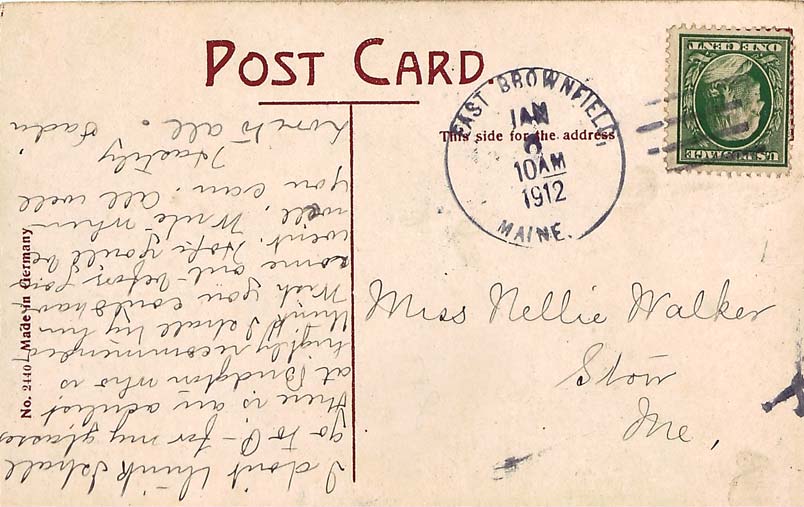 POST CARD.
This side for the address
EAST BROWNFIELD,
JAN
10AM
1912
MAINE.
U.S. POSTAGE
ONE CENT
Miss Nellie Walker
Stow
Me,
I don't think I shall
go to P- for my glasses
there is an oculist
at Bridgton who is
highly recommended
think I shall try him
Wish you could have
come out before you
went. Hope you'll be
well. Write when
you can. All well
Hastily
Love to all.
No. 2440 Made in Germany